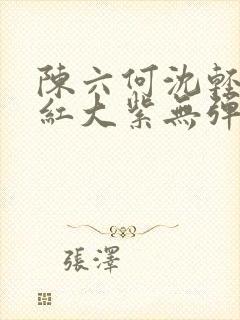 陳六何沈輕
紅大紫無彈
張澤